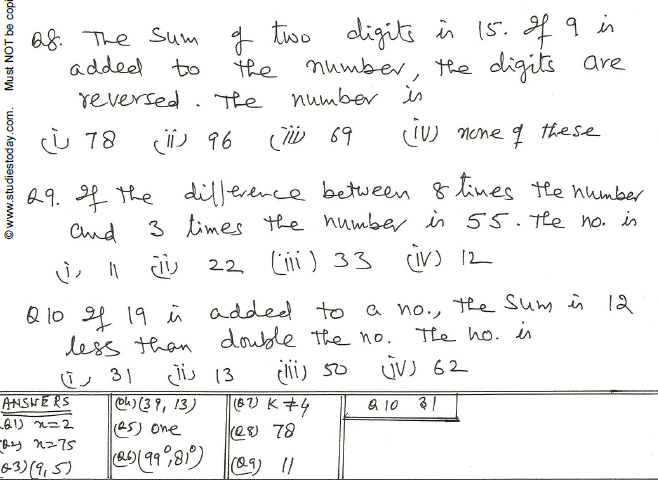 Q8. The sum of two digits is 15. If 9 is
added to the number, the digits are
reversed. The number is
(i) 78 (ii) 96 (iii) 69 (iv) none of these
Q9. If the difference between 8 times the number
and 3 times the number is 55. The no. is
(i) 11 (ii) 22 (iii) 33 (iv) 12
Q10 If 19 is added to a no., the sum is 12
less than double the no. The no. is
(i) 31 (ii) 13 (iii) 50 (iv) 62
ANSWERS
Q1) x=2
Q2) x=75
Q3) (9, 5)
Q4) (39, 13)
Q5) one
Q6) (99°, 81°)
Q7) K ≠ 4
Q8) 78
Q9) 11
Q10 31
© www.studiestoday.com. Must NOT be